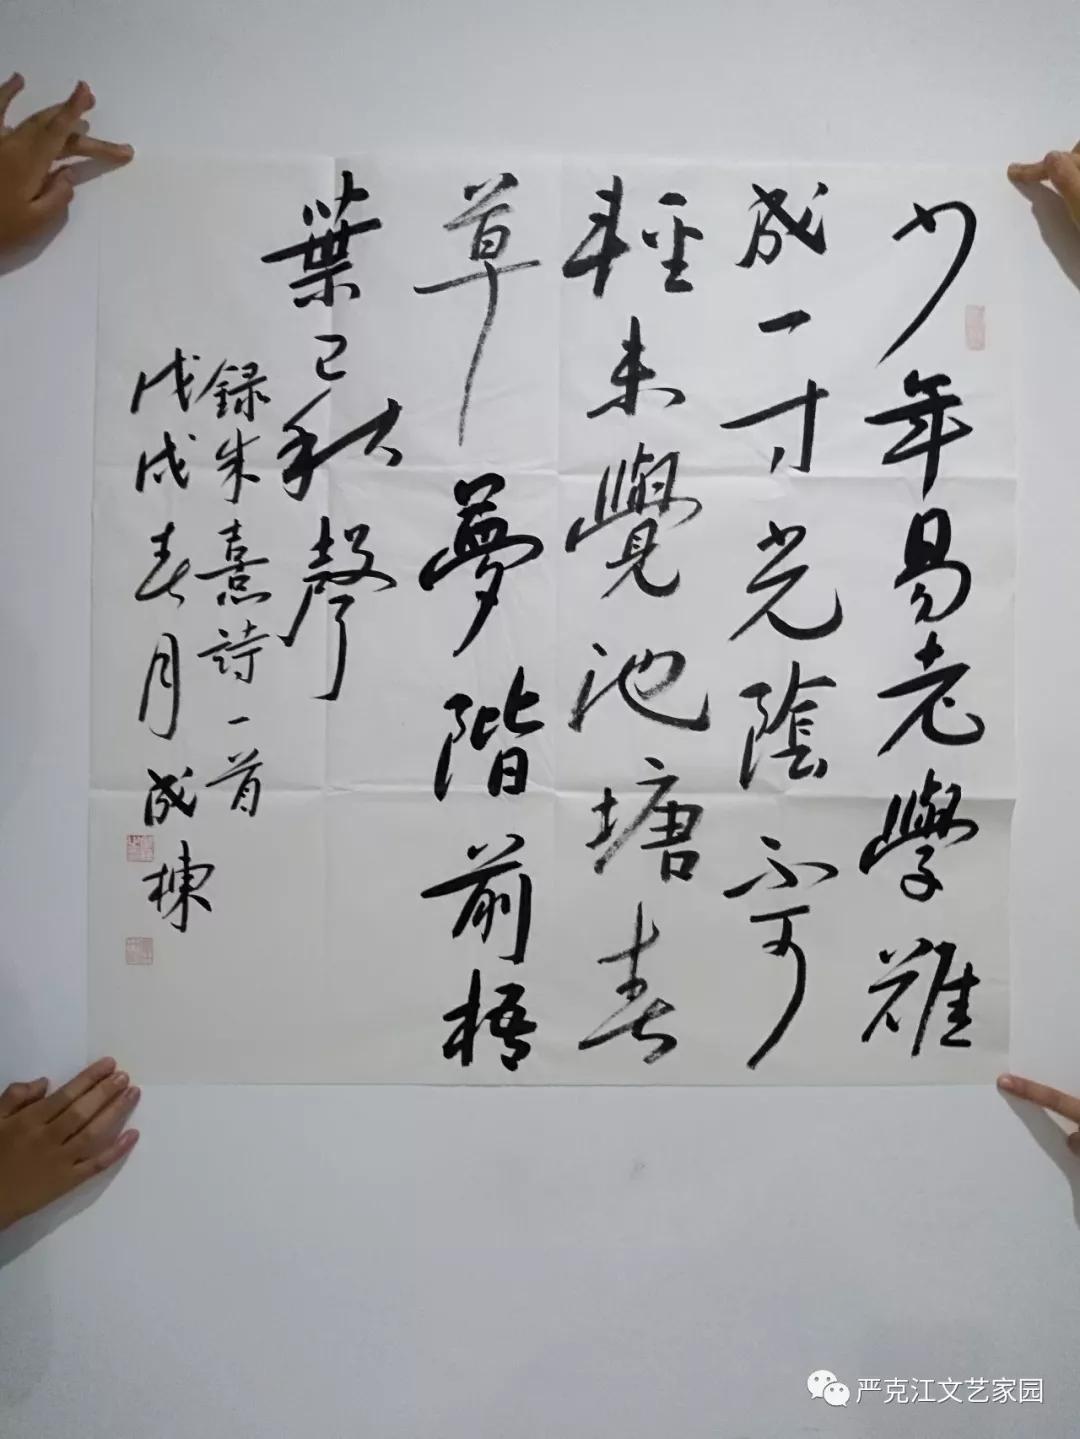 少年易老學難
成一寸光陰不可
輕未覺池塘春
草夢階前梧
葉已秋聲
錄朱熹詩一首
戊戌春月成棟
严克江文艺家园